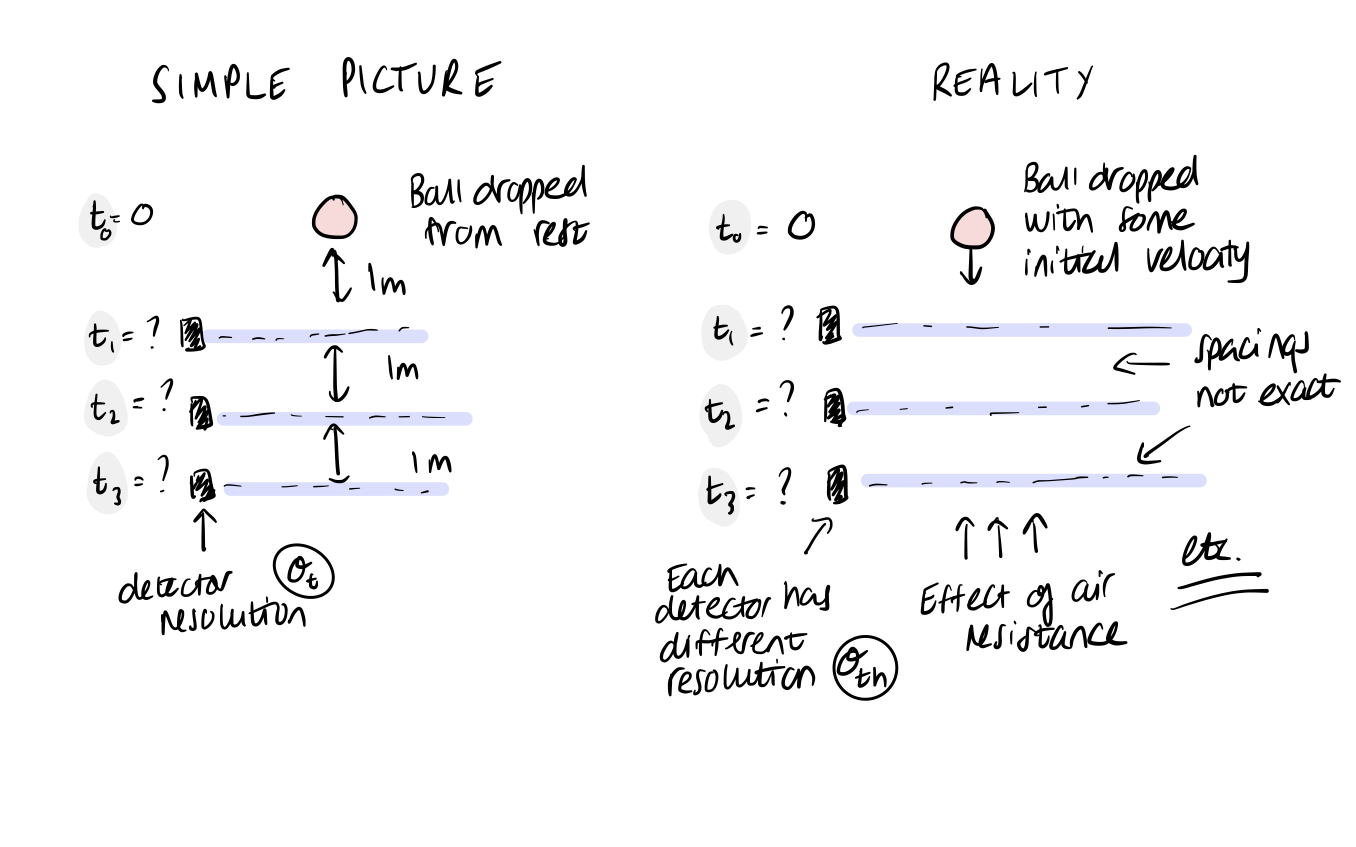 SIMPLE PICTURE
t₀=0
Ball dropped
from rest
1m
t₁=?
1m
t₂=?
1m
t₃=?
detector
resolution
σₜ
REALITY
t₀ = 0
Ball dropped
with some
initial velocity
t₁ = ?
spacings
not exact
t₂ = ?
t₃ = ?
Each
detector has
different
resolution
σₜₙ
Effect of air
resistance
etc.